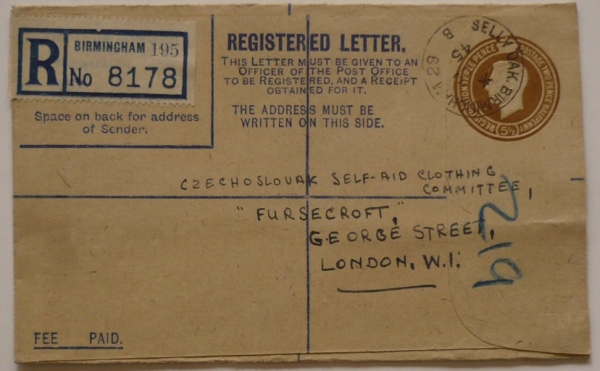 R
BIRMINGHAM 195
No 8178
Space on back for address
of Sender.
REGISTERED LETTER.
THIS LETTER MUST BE GIVEN TO AN
OFFICER OF THE POST OFFICE
TO BE REGISTERED, AND A RECEIPT
OBTAINED FOR IT.
THE ADDRESS MUST BE
WRITTEN ON THIS SIDE.
SELLY OAK. BIRMINGHAM 29
45
REGISTRATION THREE PENCE POSTAGE TWO PENCE HALFPENNY
5½
CZECHOSLOVAK SELF-AID CLOTHING
COMMITTEE,
"FURSECROFT,"
GEORGE STREET,
LONDON, W.1.
219
FEE PAID.